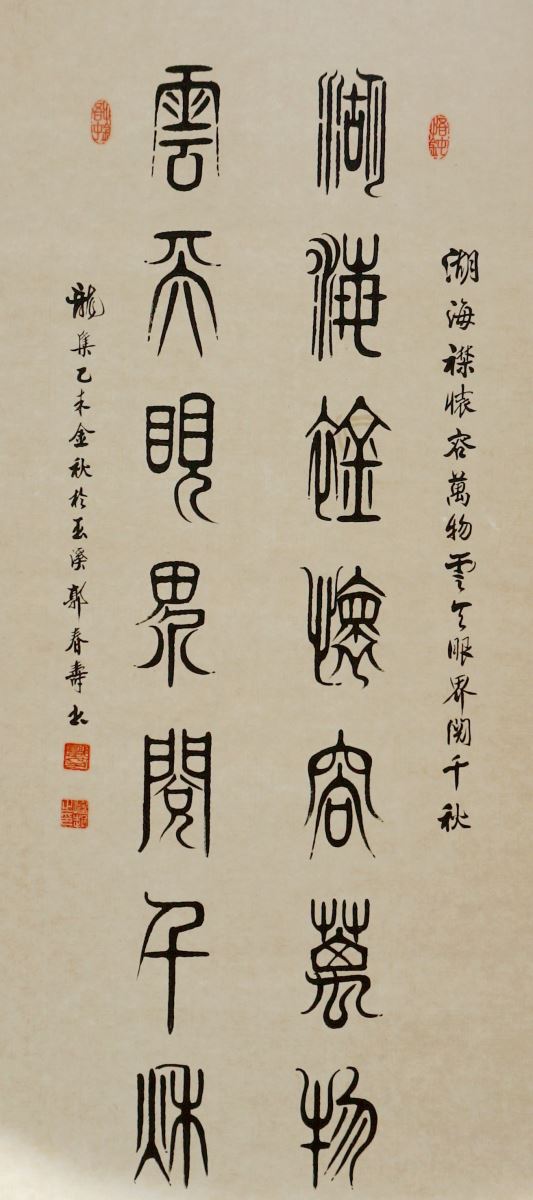 湖海襟懷容萬物雲天眼界閱千秋
湖海襟懷容萬物
雲天眼界閱千秋
龍集乙未金秋於玉溪郭春壽書